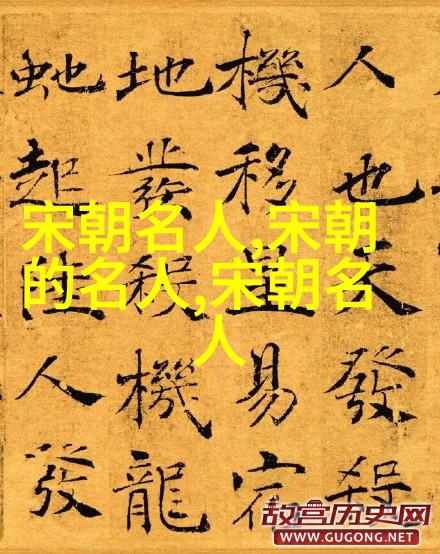 人也天發殺
機移星易宿
地發殺機龍
虵起陸人發
宋朝名人,宋朝
的名人,宋朝名
人
故宫历史网
WWW.GUGONG.NET